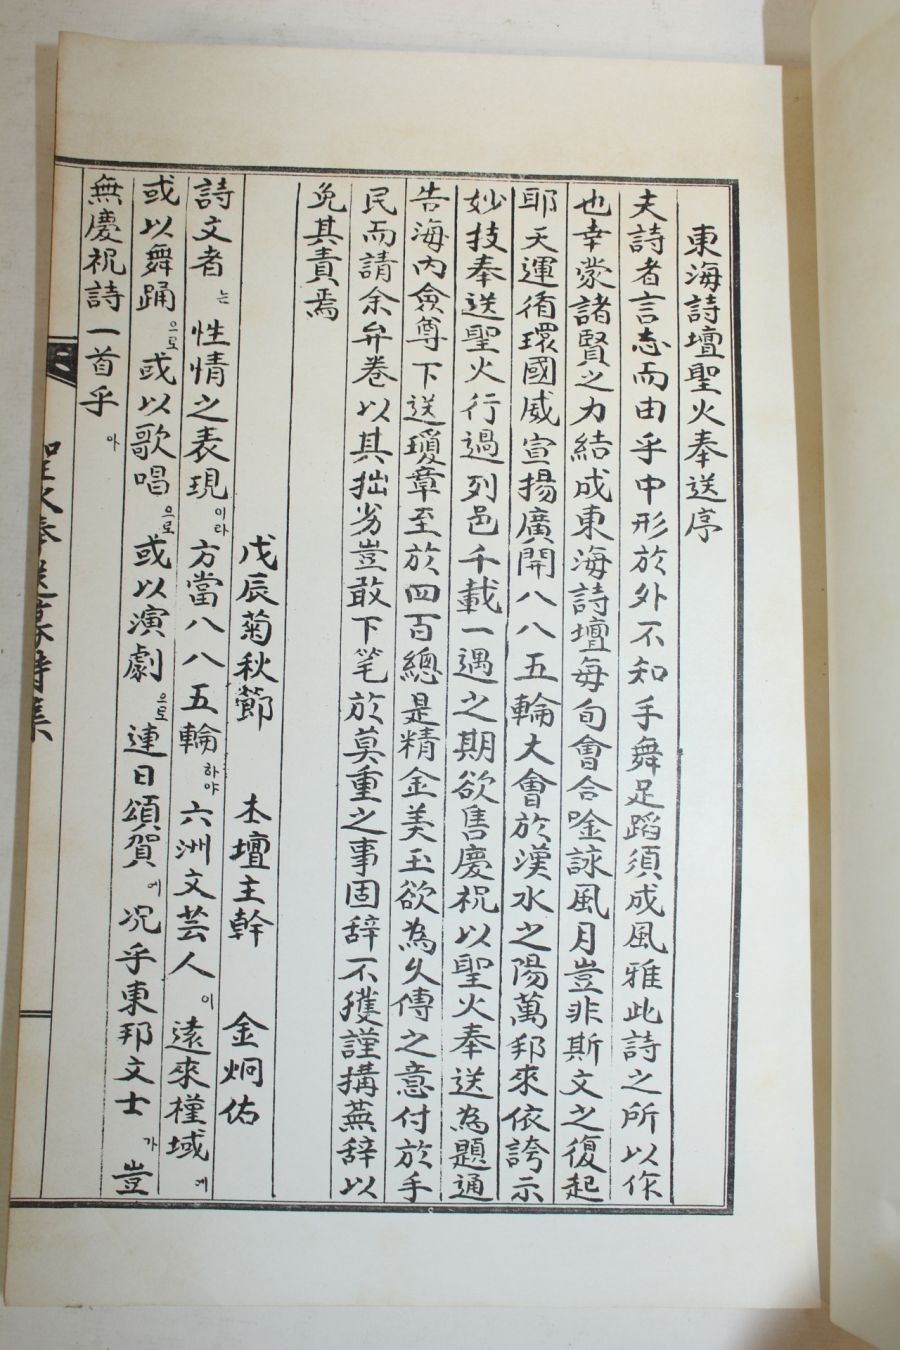 東海詩壇聖火奉送序
夫詩者言志而由乎中形於外不知手舞足蹈須成風雅此詩之所以作
也幸蒙諸賢之力結成東海詩壇每旬會合唫詠風月豈非斯文之復起
耶天運循環國威宣揚廣開八八五輪大會於漢水之陽萬邦來依誇示
妙技奉送聖火行過列邑千載一遇之期欲售慶祝以聖火奉送為題通
告海內僉尊下送瓊章至於四百總是精金美玉欲為久傳之意付於手
民而請余弁卷以其拙劣豈敢下笔於莫重之事固辞不獲謹搆蕪辞以
免其責焉
戊辰菊秋節 本壇主幹 金炯佑
詩文者는性情之表現이라方當八八五輪하야六洲文芸人이遠來槿域에
或以舞踊으로或以歌唱으로或以演劇으로連日頌賀에况乎東邦文士가豈
無慶祝詩一首乎아
聖火奉送篆詩集